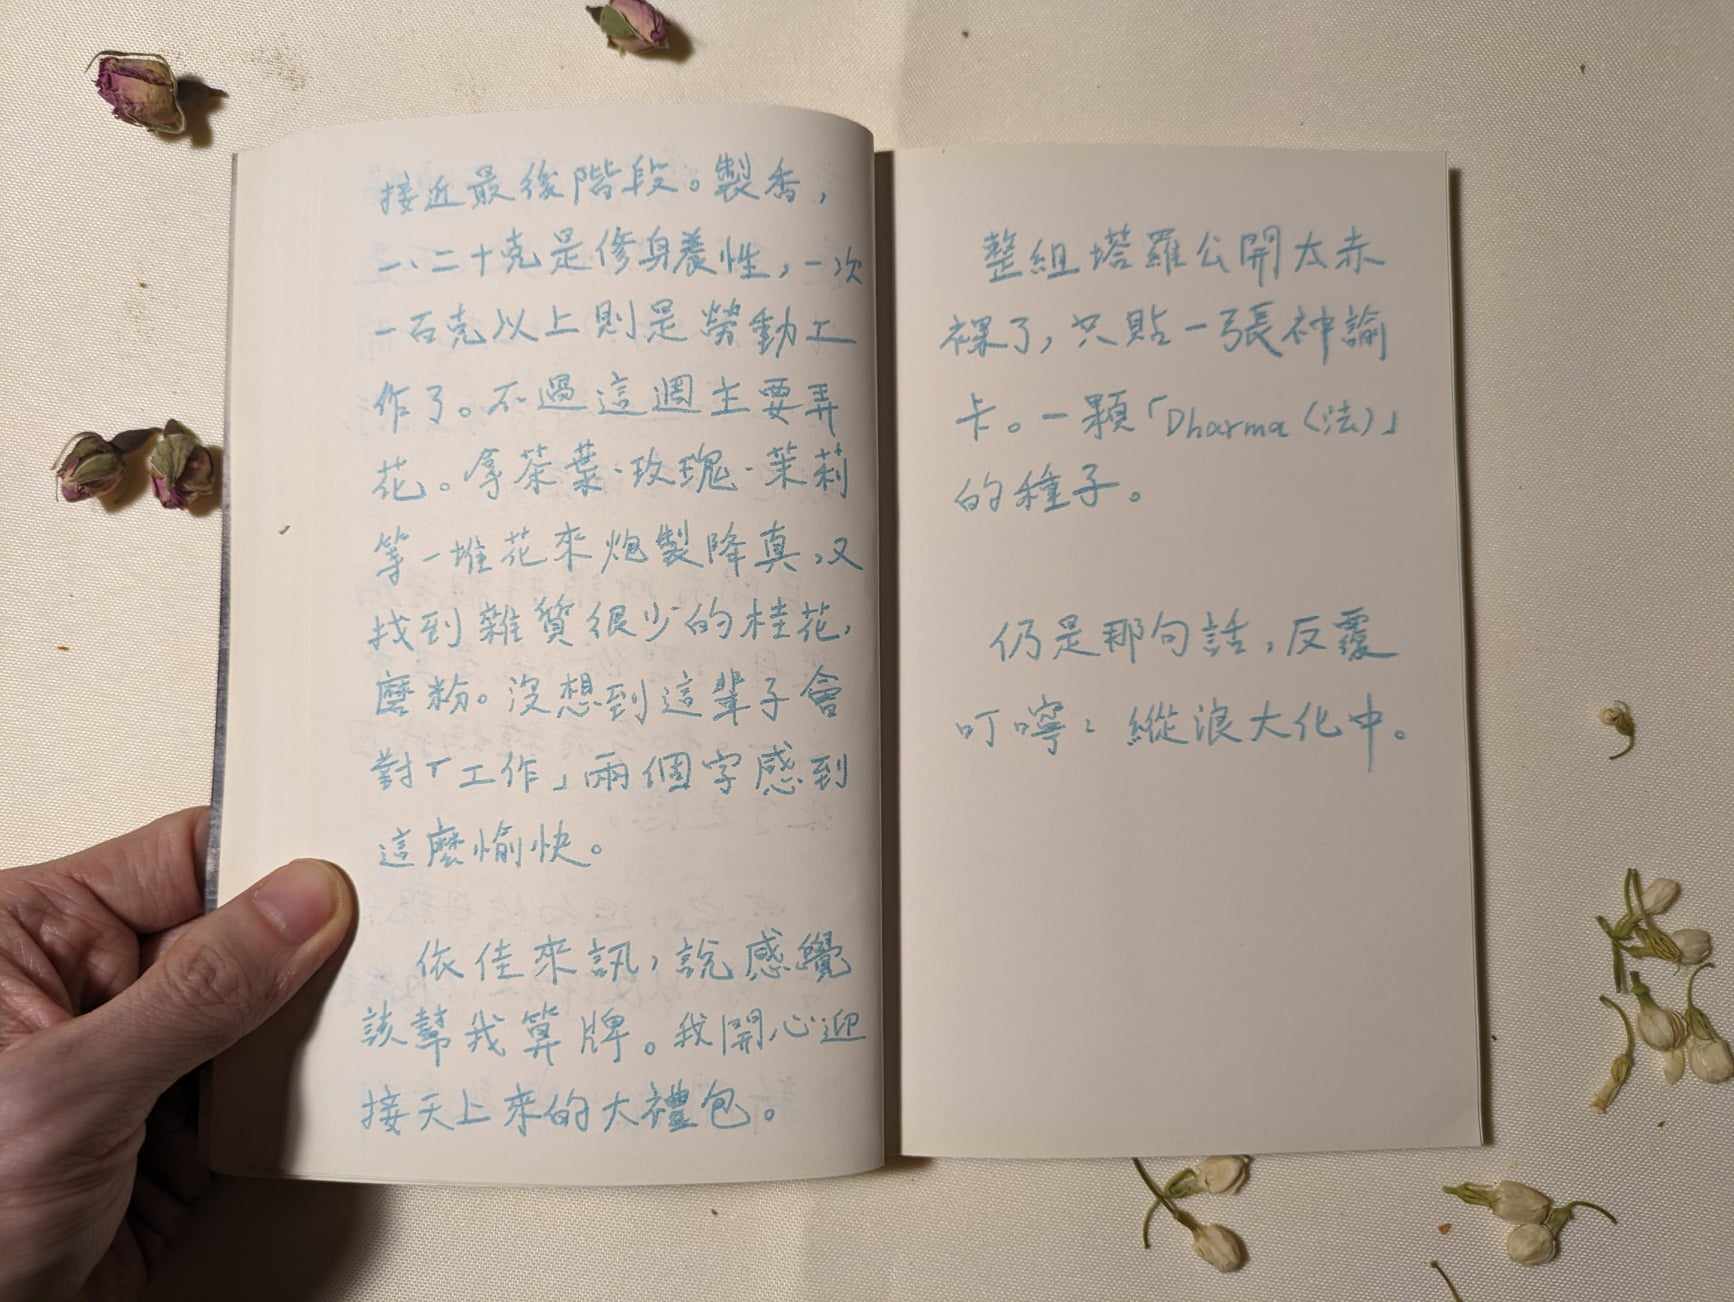 接近最後階段。製香，
一、二十克是修身養性，一次
一百克以上則是勞動工
作了。不過這週主要弄
花。拿茶葉·玫瑰·茉莉
等一堆花來炮製降真，又
找到雜質很少的桂花，
磨粉。沒想到這輩子會
對「工作」兩個字感到
這麼愉快。
依佳來訊，說感覺
該幫我算牌。我開心迎
接天上來的大禮包。
整組塔羅公開太赤
裸了，只貼一張神諭
卡。一顆「Dharma（法）」
的種子。
仍是那句話，反覆
叮嚀：縱浪大化中。